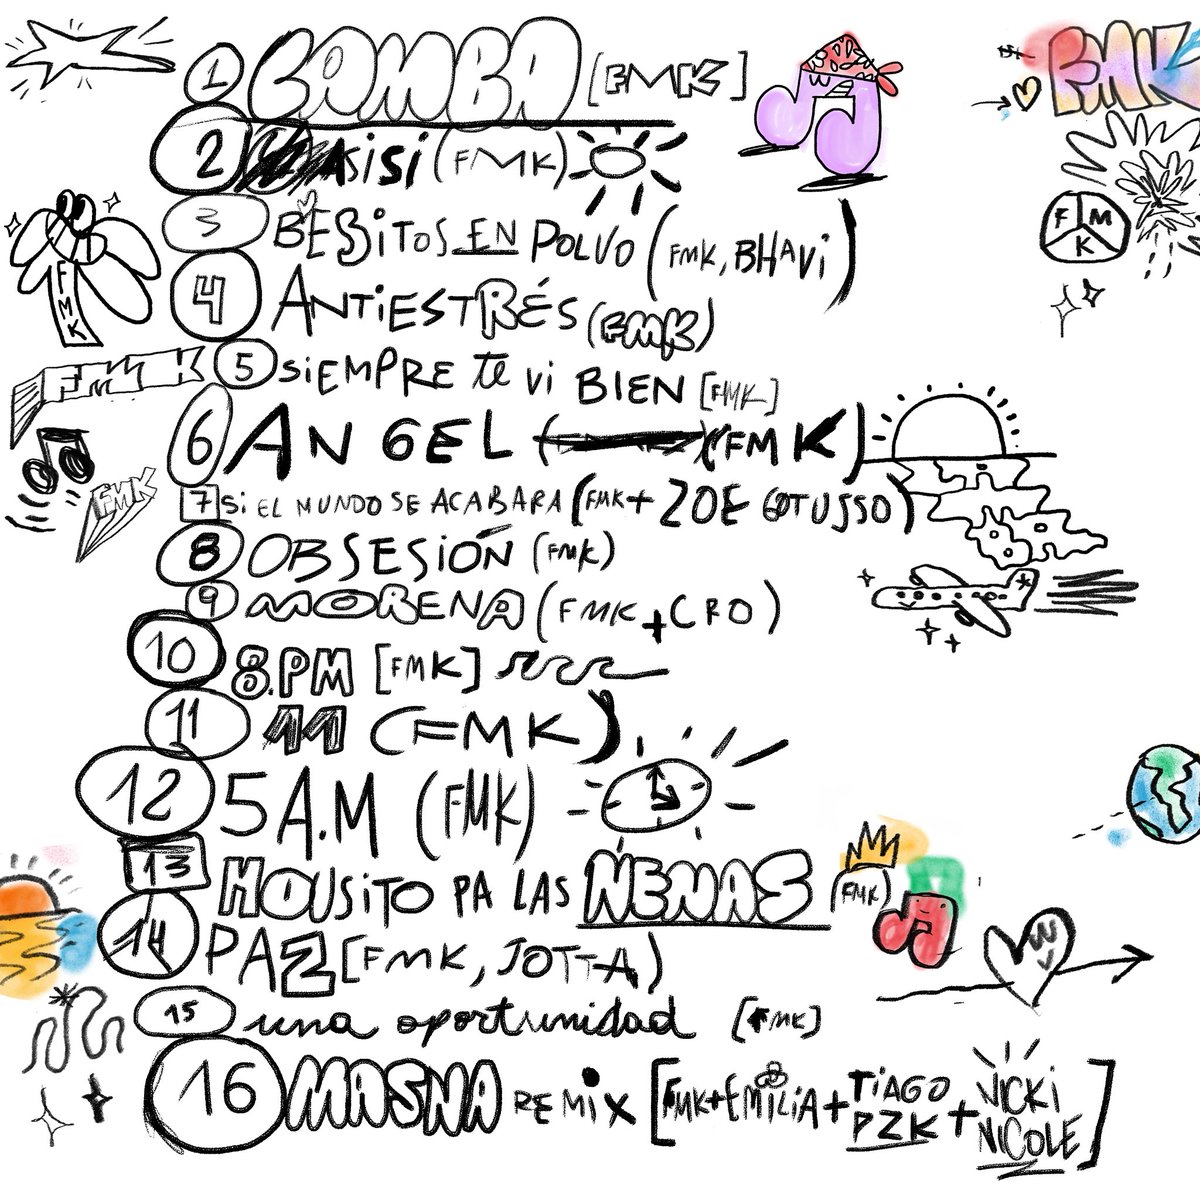 1 BAMBA [FMK]
2 ASISI (FMK)
3 BEBITOS EN POLVO (FMK, BHAVI)
4 ANTIESTRÉS (FMK)
5 SIEMPRE TE VI BIEN [FMK]
6 ANGEL (FMK)
7 SI EL MUNDO SE ACABARA (FMK + ZOE GOTUSSO)
8 OBSESIÓN (FMK)
9 MORENA (FMK + CRO)
10 8.PM [FMK]
11 11 (FMK)
12 5 A.M (FMK)
13 HOUSITO PA LAS ÑENAS (FMK)
14 PAZ [FMK, JOTTA)
15 una oportunidad [FMK]
16 MASNA REMIX [FMK + EMILIA + TIAGO PZK + NICKI NICOLE]
FMK
FMK
FMK
FMK
FMK
W